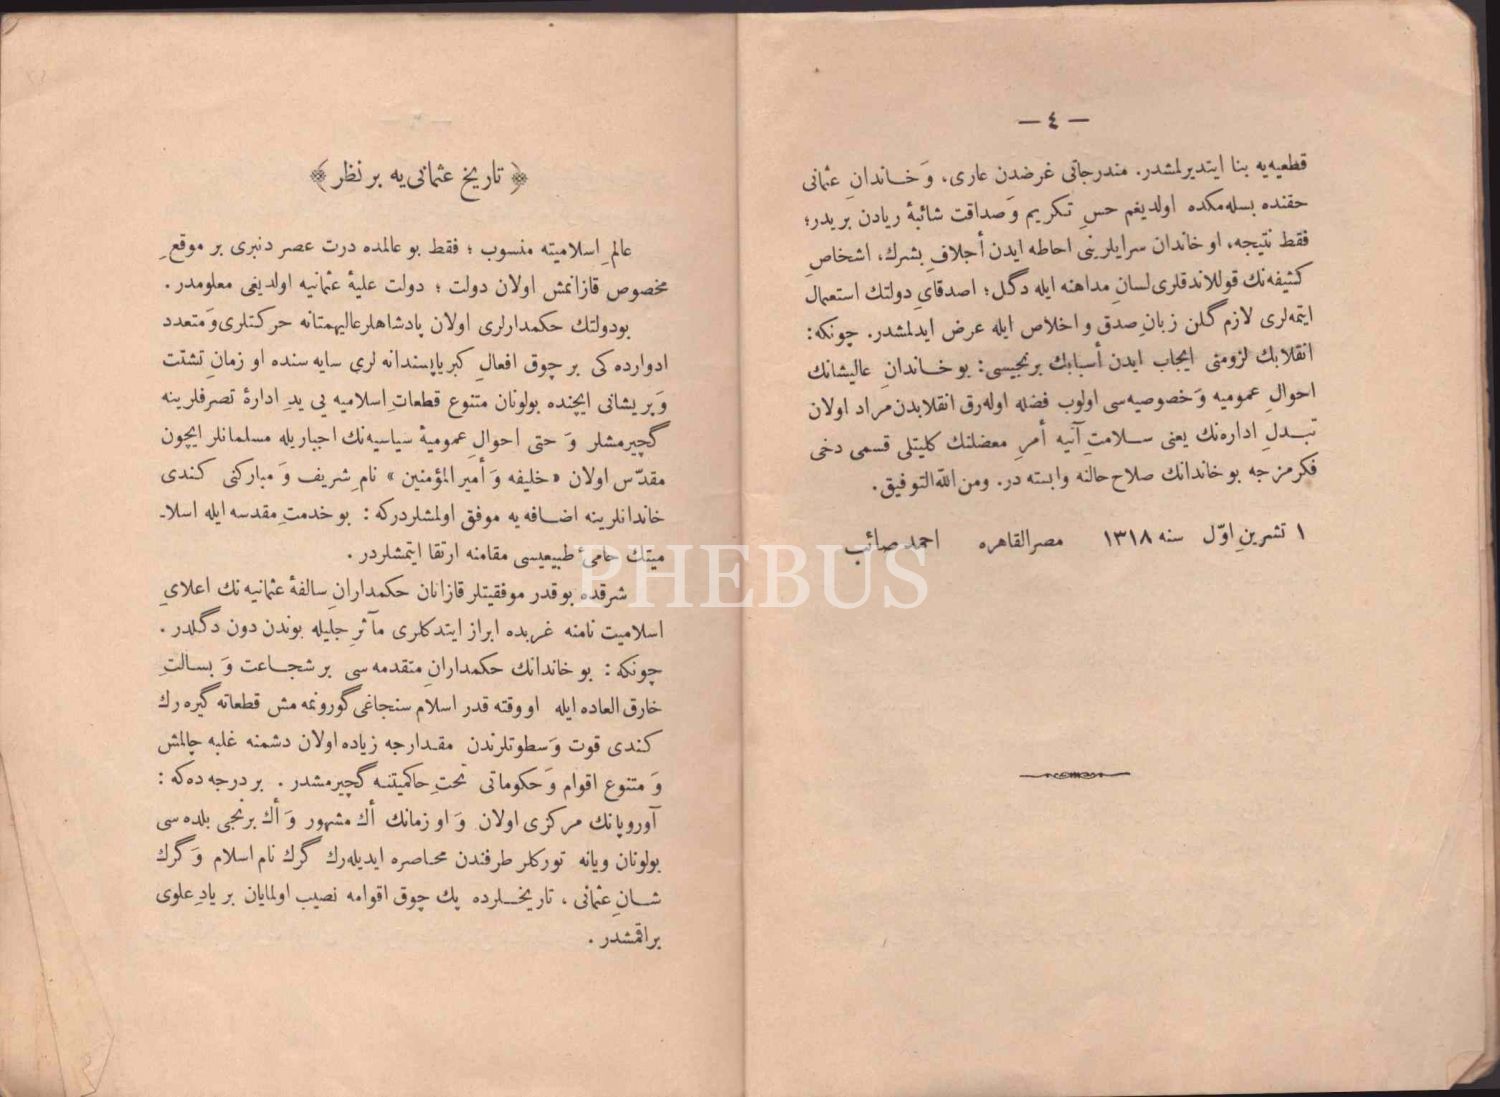 — ٤ —
قطعیه‌یه بنا ایتدیرلمشدر. مندرجاتی غرضدن عاری، وَ خاندانِ عثمانی
حقنده بسله‌مکده اولدیغم حسِ تکریم وَ صداقت شائبهٔ ریادن بریدر؛
فقط نتیجه، او خاندان سرایلرینی احاطه ایدن أجلافِ بشرك، اشخاصِ
کثیفه‌نك قوللاندقلری لسانِ مداهنه ایله دگل؛ اصدقایِ دولتك استعمال
ایتمه‌لری لازم گلن زبانِ صدق و اخلاص ایله عرض ایدلمشدر. چونکه:
انقلابك لزومنی ایجاب ایدن أسبابك برنجیسی: بو خاندانِ عالیشانك
احوالِ عمومیه وَ خصوصیه‌سی اولوب فضله اوله‌رق انقلابدن مراد اولان
تبدلِ اداره‌نك یعنی سلامتِ آتیه أمرِ معضلنك کلیتلی قسمی دخی
فکرمزجه بو خاندانك صلاح حالنه وابسته در. ومن الله التوفیق.
١ تشرینِ اوّل سنه ١٣١٨ مصرالقاهره احمد صائب
﴿ تاریخ عثمانی‌یه بر نظر ﴾
عالمِ اسلامیته منسوب ؛ فقط بو عالمده درت عصر دنبری بر موقعِ
مخصوص قازانمش اولان دولت ؛ دولت علیهٔ عثمانیه اولدیغی معلومدر.
بودولتك حکمدارلری اولان پادشاهلر عالیهمتانه حرکتلری وَ متعدد
ادوارده کی بر چوق افعالِ کبریاپسندانه لری سایه سنده او زمانِ تشتت
وَ پریشانی ایچنده بولونان متنوع قطعاتِ اسلامیه یی یدِ ادارهٔ تصرفلرینه
گچیرمشلر وَ حتی احوالِ عمومیهٔ سیاسیه‌نك اجباریله مسلمانلر ایچون
مقدّس اولان «خلیفه وَ أمیر المؤمنین» نامِ شریف وَ مبارکنی کندی
خاندانلرینه اضافه یه موفق اولمشلردرکه : بو خدمتِ مقدسه ایله اسلا۔
میتك حامیٔ طبیعیسی مقامنه ارتقا ایتمشلردر .
شرقده بو قدر موفقیتلر قازانان حکمدارانِ سالفهٔ عثمانیه نك اعلایِ
اسلامیت نامنه غربده ابراز ایتدکلری مآثرِ جلیله بوندن دون دگلدر .
چونکه : بو خاندانك حکمدارانِ متقدمه سی بر شجاعت وَ بسالتِ
خارق العاده ایله او وقته قدر اسلام سنجاغی گورونمه مش قطعاته گیره رك
کندی قوت وَ سطوتلرندن مقدارجه زیاده اولان دشمنه غلبه چالمش
وَ متنوع اقوام وَ حکوماتی تحتِ حاکمیتنه گچیرمشدر . بر درجه ده که :
آوروپانك مرکزی اولان وَ او زمانك أك مشهور وَ أك برنجی بلده سی
بولونان ویانه تورکلر طرفندن محاصره ایدیله‌رك گرك نام اسلام وَ گرك
شانِ عثمانی ، تاریخلرده پك چوق اقوامه نصیب اولمایان بر یادِ علوی
براقمشدر .
PHEBUS